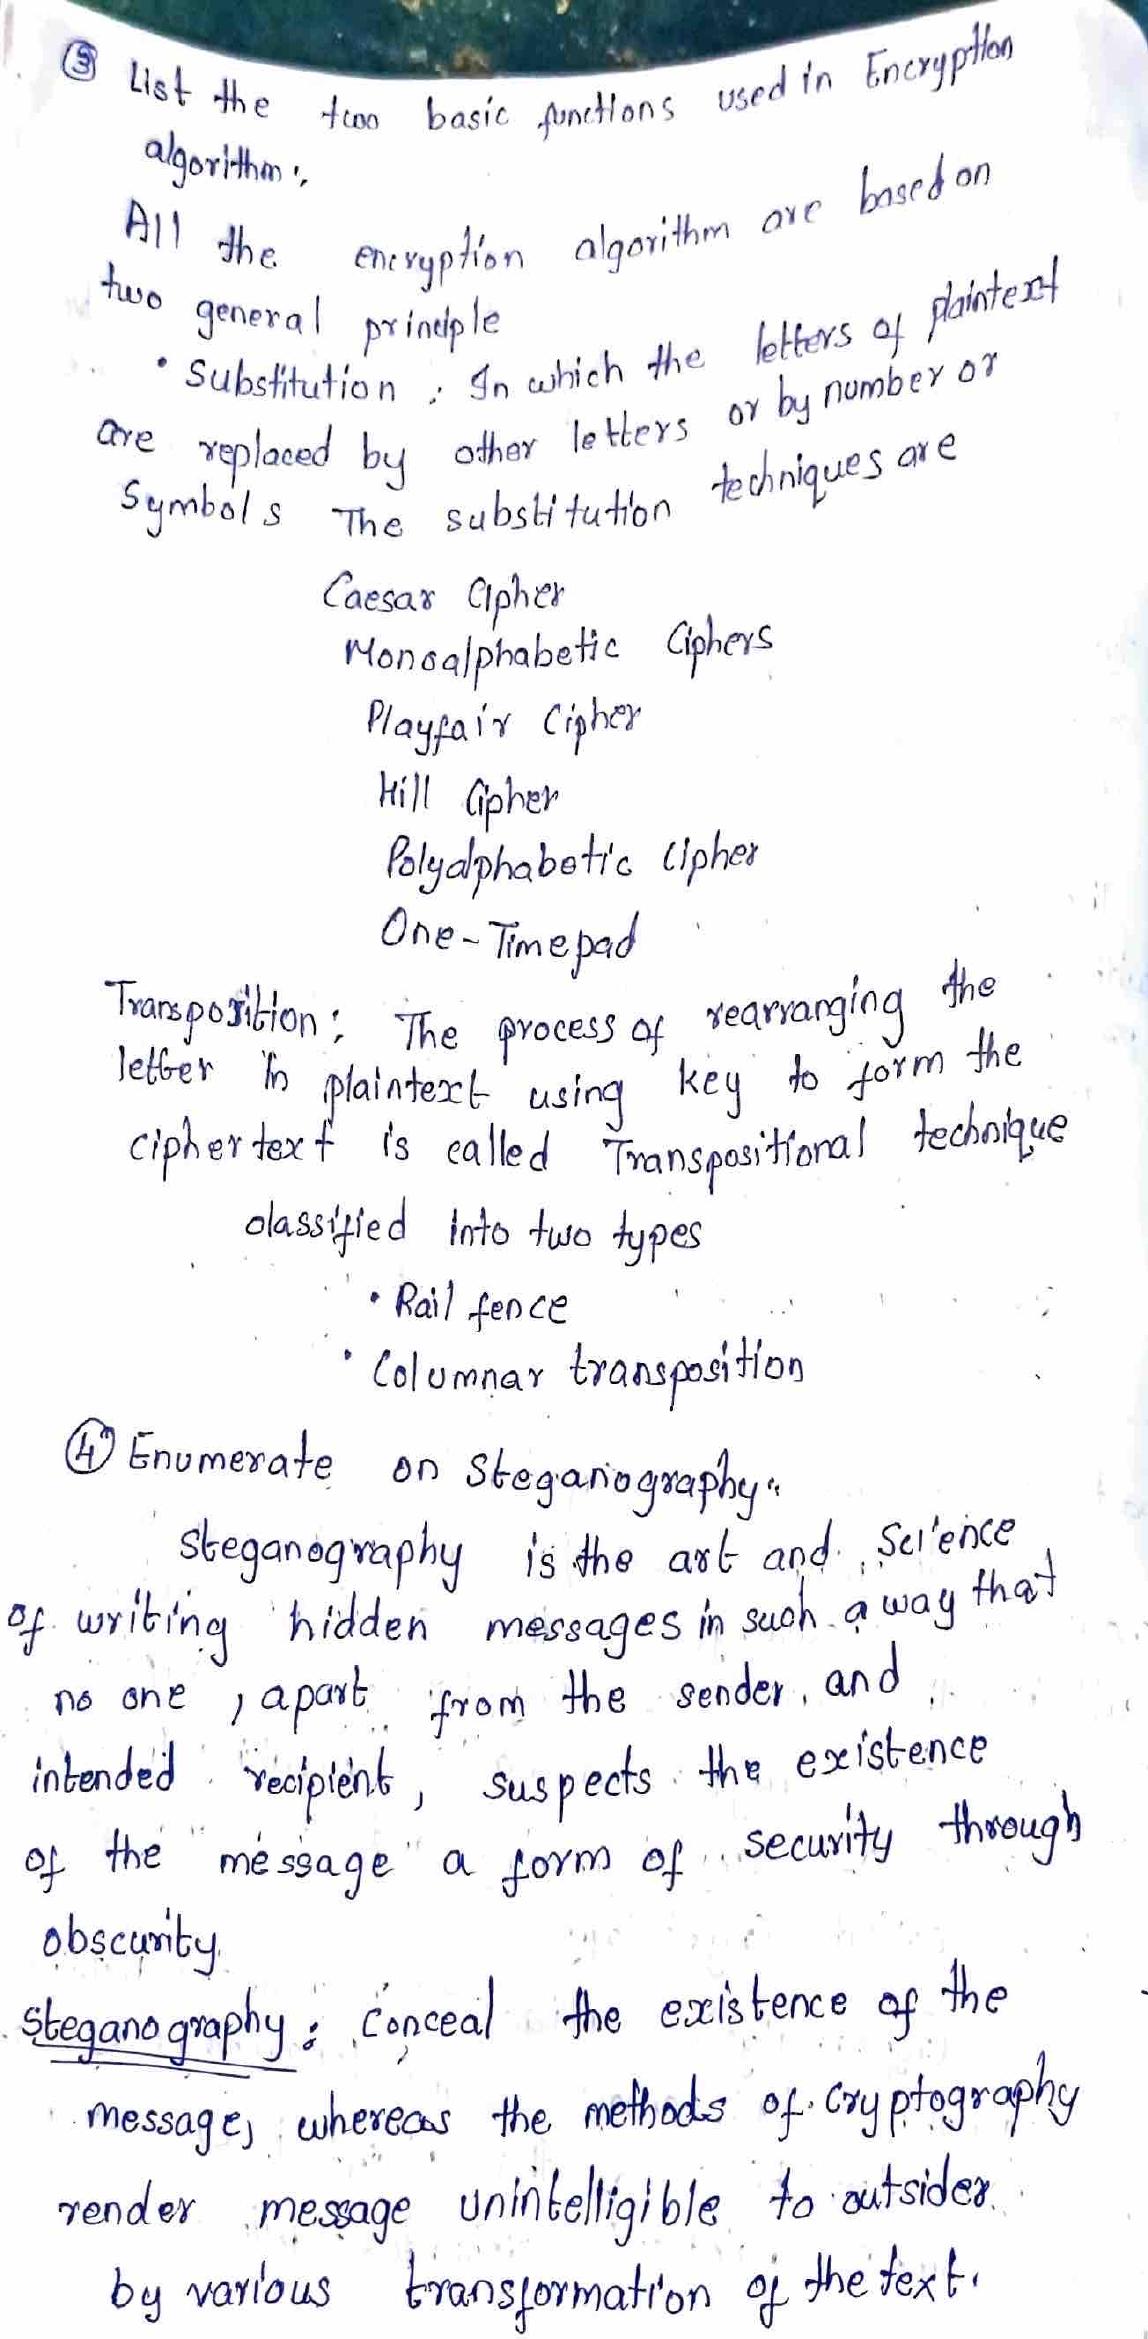 ③ List the two basic functions used in Encryption
algorithm:,
All the encryption algorithm are based on
two general principle
• Substitution : In which the letters of plaintext
are replaced by other letters or by number or
Symbols The substitution techniques are
Caesar Cipher
Monoalphabetic Ciphers
Playfair Cipher
Hill Cipher
Polyalphabetic Cipher
One-Timepad
Transposition: The process of rearranging the
letter in plaintext using key to form the
ciphertext is called Transpositional technique
classified into two types
• Rail fence
• Columnar transposition
④ Enumerate on Steganography"
Steganography is the art and science
of writing hidden messages in such a way that
no one , apart from the sender, and
intended recipient, suspects the existence
of the "message" a form of security through
obscurity.
Steganography: Conceal the existence of the
message, whereas the methods of cryptography
render message unintelligible to outsider
by various transformation of the text.